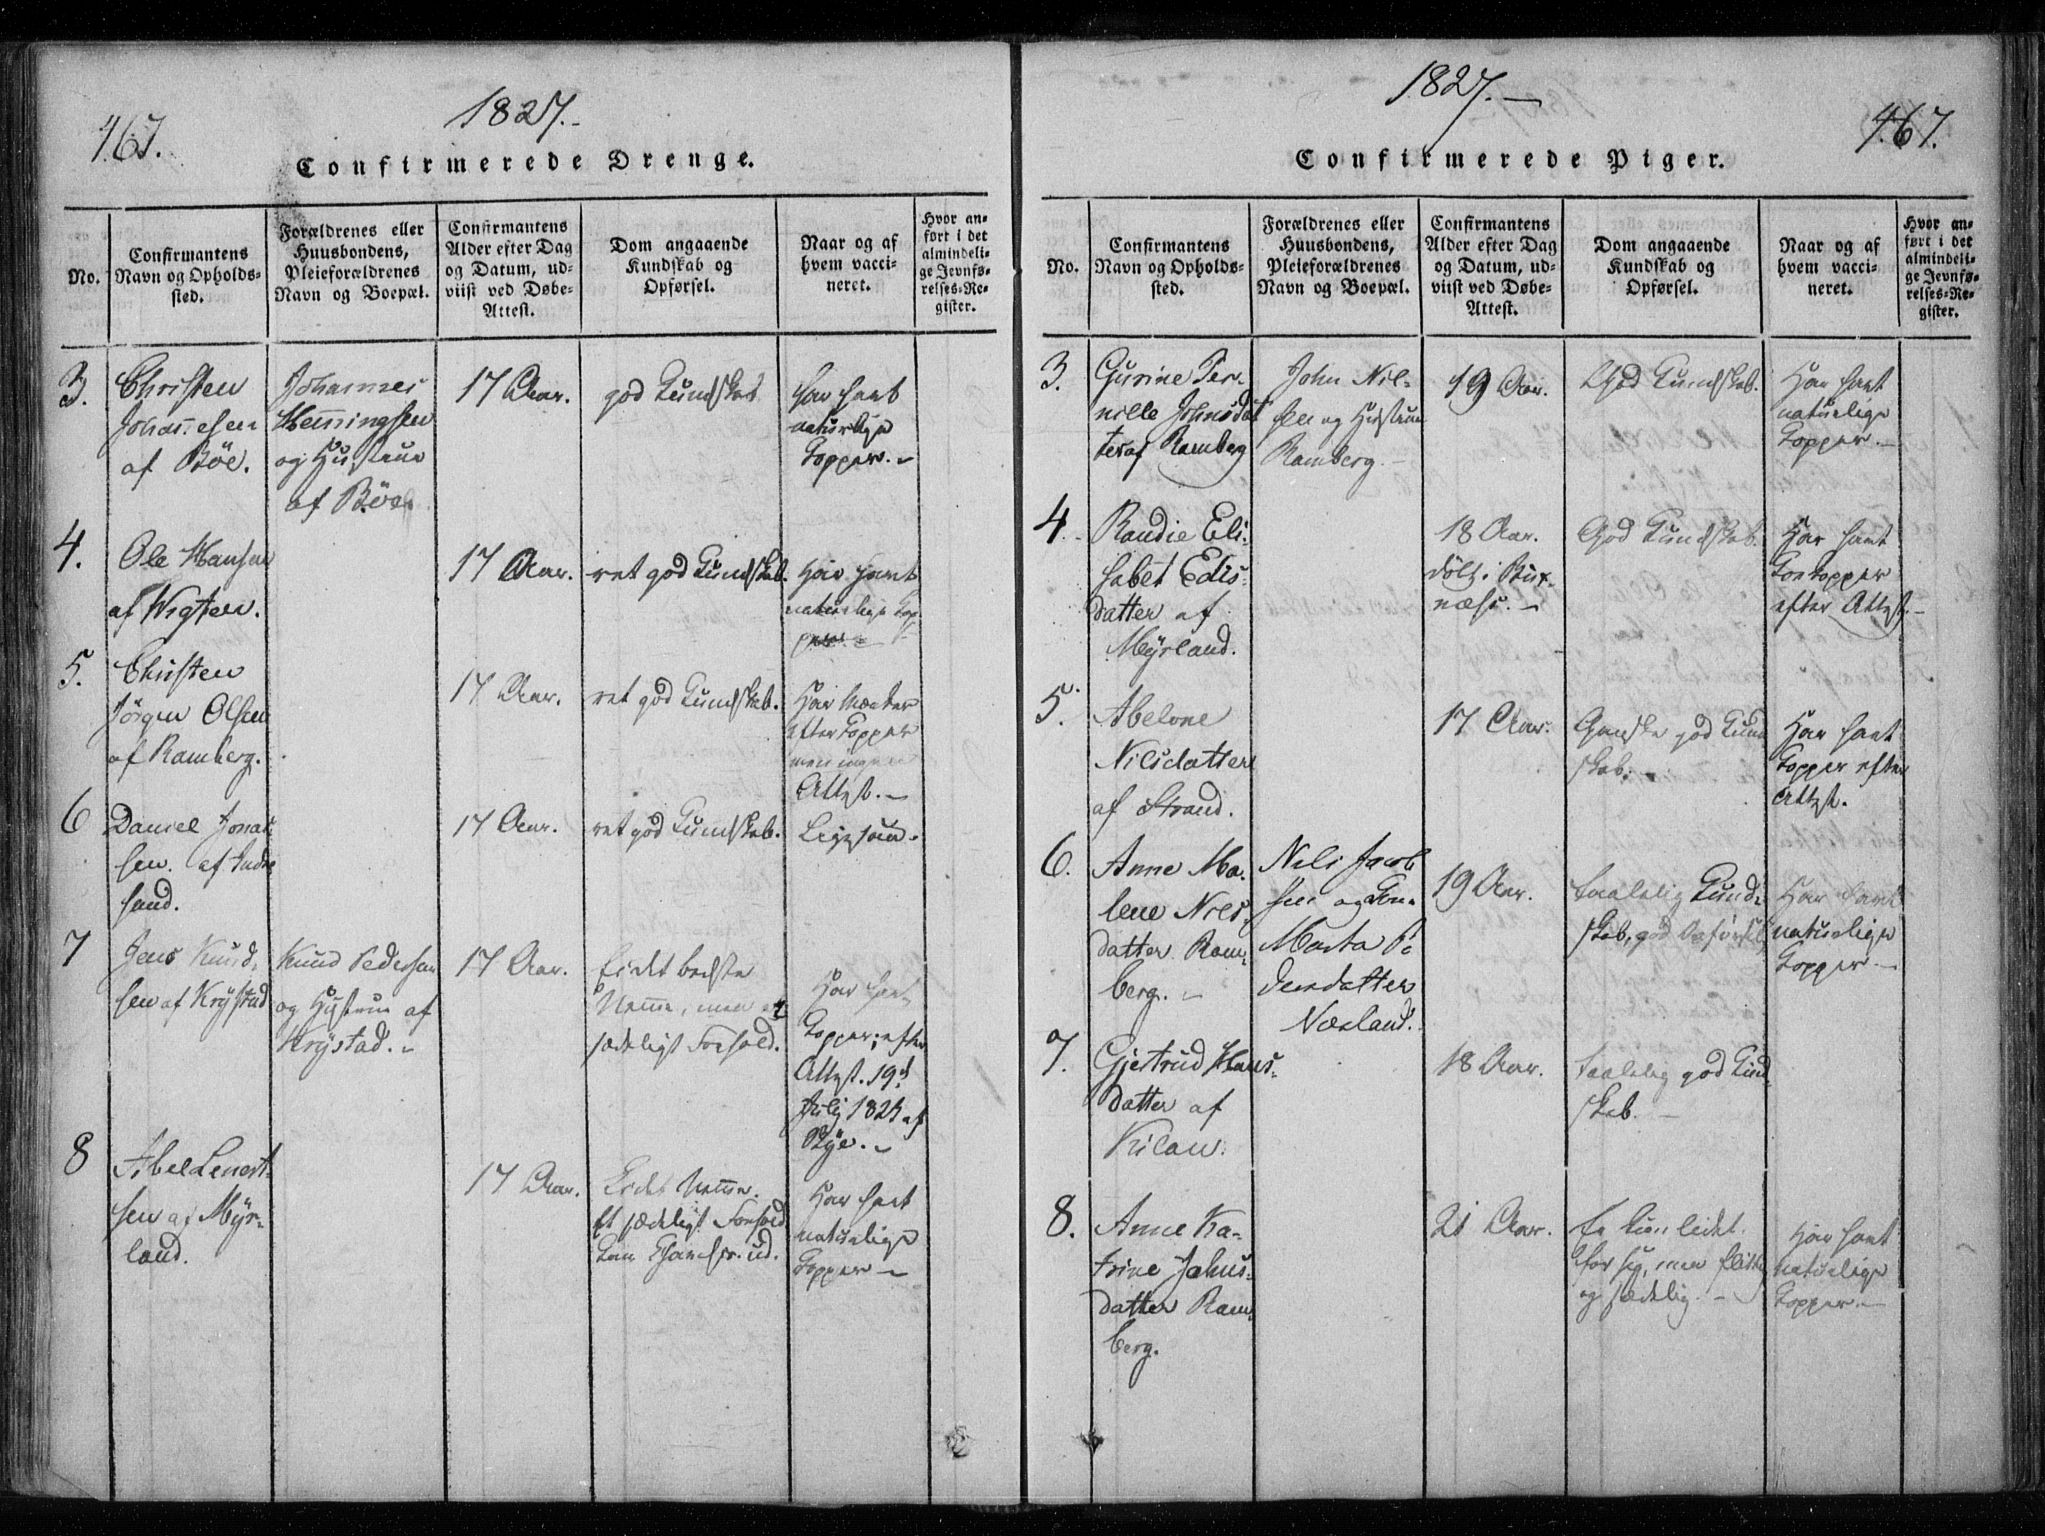 467.
1827.-
Confirmerede Drenge.
No.
Confirmantens
Navn og Opholds-
sted.
Forældrenes eller
Huusbondens,
Pleieforældrenes
Navn og Boepæl.
Confirmantens
Alder efter Dag
og Datum, ud-
viist ved Døbe-
Attest.
Dom angaaende
Kundskab og
Opførsel.
Naar og af
hvem vacci-
neret.
Hvor an-
ført i det
almindeli-
ge Jevnfø-
relses-Re-
gister.
3.
Christen
Johannesen
af Böe.
Johannes
Henningsen
og Hustrue
af Böe.
17 Aar.
god Kundskab
har havt
naturlige
Kopper.-
4.
Ole Hansen
af Wigten.
17 Aar.
ret god Kundskab.
Har havt
naturlige Kop-
per.-
5.
Christen
Jörgen Olsen
af Ramberg.
17 Aar.
ret god Kundskab.
Har Mærker
efter Kopper
men ingen
Attest.-
6
Daniel Jonas-
sen af Indre
sand.
17 Aar.
ret god Kundskab.
Ligesaa.
7
Jens Knud-
sen af Krystad
Knud Pedersen
og Hustrue af
Krystad.-
17 Aar.
Ei det bedste
Nemme, men et
sædeligt Forhold.
Har havt
Kopper, efter
Attest. 19d
July 1824 af
Rye.-
8
Abel Lenert-
sen af Myr-
land.
17 Aar.
Et sædeligt Forhold
Har havt
naturlige
Kopper-
1827.-
467.
Confirmerede Piger.
No.
Confirmantens
Navn og Opholds-
sted.
Forældrenes eller
Huusbondens,
Pleieforældrenes
Navn og Boepæl.
Confirmantens
Alder efter Dag
og Datum, ud-
viist ved Døbe-
Attest.
Dom angaaende
Kundskab og
Opførsel.
Naar og af
hvem vacci-
neret.
Hvor an-
ført i det
almindeli-
ge Jevnfø-
relses-Re-
gister.
3.
Gurine Per-
nille Johnsdat
ter af Ramberg
John Nil-
sen og Hustrue
Ramberg.-
19 Aar.
God Kundskab.
Har havt
naturlige
Kopper.-
4.
Randie Eli-
sabet Edis-
datter af
Myrland.
18 Aar.
döbt i Bux-
næss.-
God Kundskab.
Har havt
Kokopper
efter Attest.-
5.
Abelone
Nilsdatter
af Strand.
17 Aar.
Ganske god Kund
skab.
Har havt
Kopper efter
Attest.
6.
Anne Ma-
lene Niels-
datter Ram-
berg.-
Nils Jacob
sen og Kone
Marta Pe
dersdatter
Næsland.
19 Aar.
taalelig Kund-
skab, god Opførsel
Har havt
naturlige
Kopper-
7.
Gjertrud Hans-
datter af
Kilan.
18 Aar.
taalelig god Kund-
skab.-
8.
Anne Ka-
trine Johns-
datter Ram-
berg.
21 Aar.
for sig, men flittig
og sædelig.-
Har havt
naturlige
Kopper.-